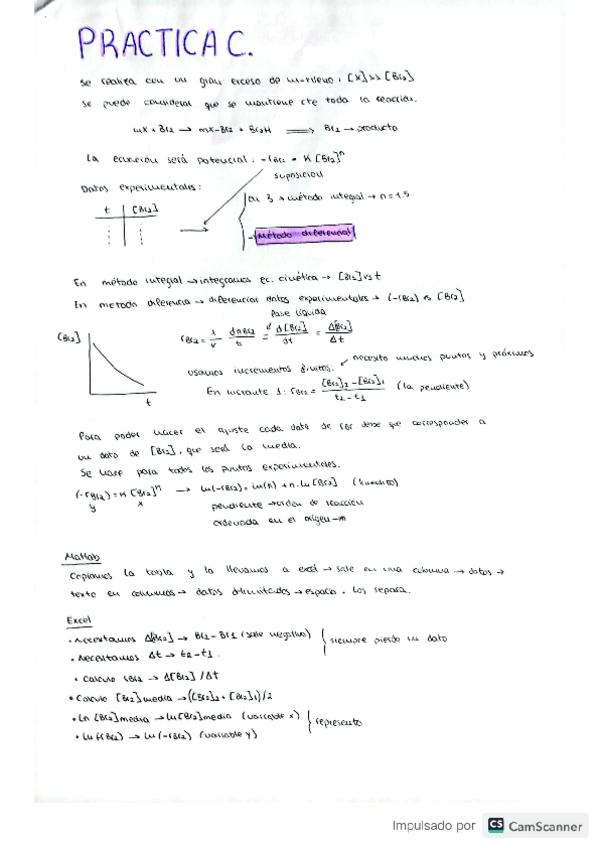 PRACTICA C.
Se realiza con un gran exceso de m-xileno, [X]>>[Br2]
Se puede considerar que se mantiene cte toda la reacción.
mX + Br2 → mX-Br2 + BrH ⟹ Br2 → producto
La ecuación será potencial: -rBr2 = K [Br2]^n
suposición
Datos experimentales:
t | [Br2]
Ord 3 → método integral → n=1.5
- Método diferencial
En método integral → integramos ec. cinética → [Br2] vs t
En metodo diferencia → diferenciar datos experimentales → (-rBr2) vs [Br2]
fase líquida
[Br2]
rBr2 = 1/V dnBr2/t = d[Br2]/dt = Δ[Br2]/Δt
necesito muchos puntos y próximos
usamos incrementos finitos.
En instante 1: rBr2 = [Br2]2-[Br2]1/t2-t1 (la pendiente)
t
Para poder hacer el ajuste cada dato de rBr debe que corresponder a
un dato de [Br2], que será la media.
Se hace para todos los puntos experimentales.
(-rBr2) = K [Br2]^n → ln(-rBr2) = ln(K) + n·ln[Br2]
y x pendiente → orden de reacción
ordenada en el origen → m
Matlab
Copiamos la tabla y la llevamos a excel → sale en una columna → datos →
texto en columnas → datos delimitados → espacio. Los separa.
Excel
• Necesitamos Δ[Br2] → Br2 - Br1 (sale negativo)
siempre pierdo un dato
• Necesitamos Δt → t2-t1.
• Calculo rBr2 → Δ[Br2]/Δt
• Calculo [Br2]media → ([Br2]2+[Br2]1)/2
• Ln [Br2]media → ln[Br2]media (variable x)
represento
• Ln(-rBr2) → ln(-rBr2) (variable y)
Impulsado por CS CamScanner